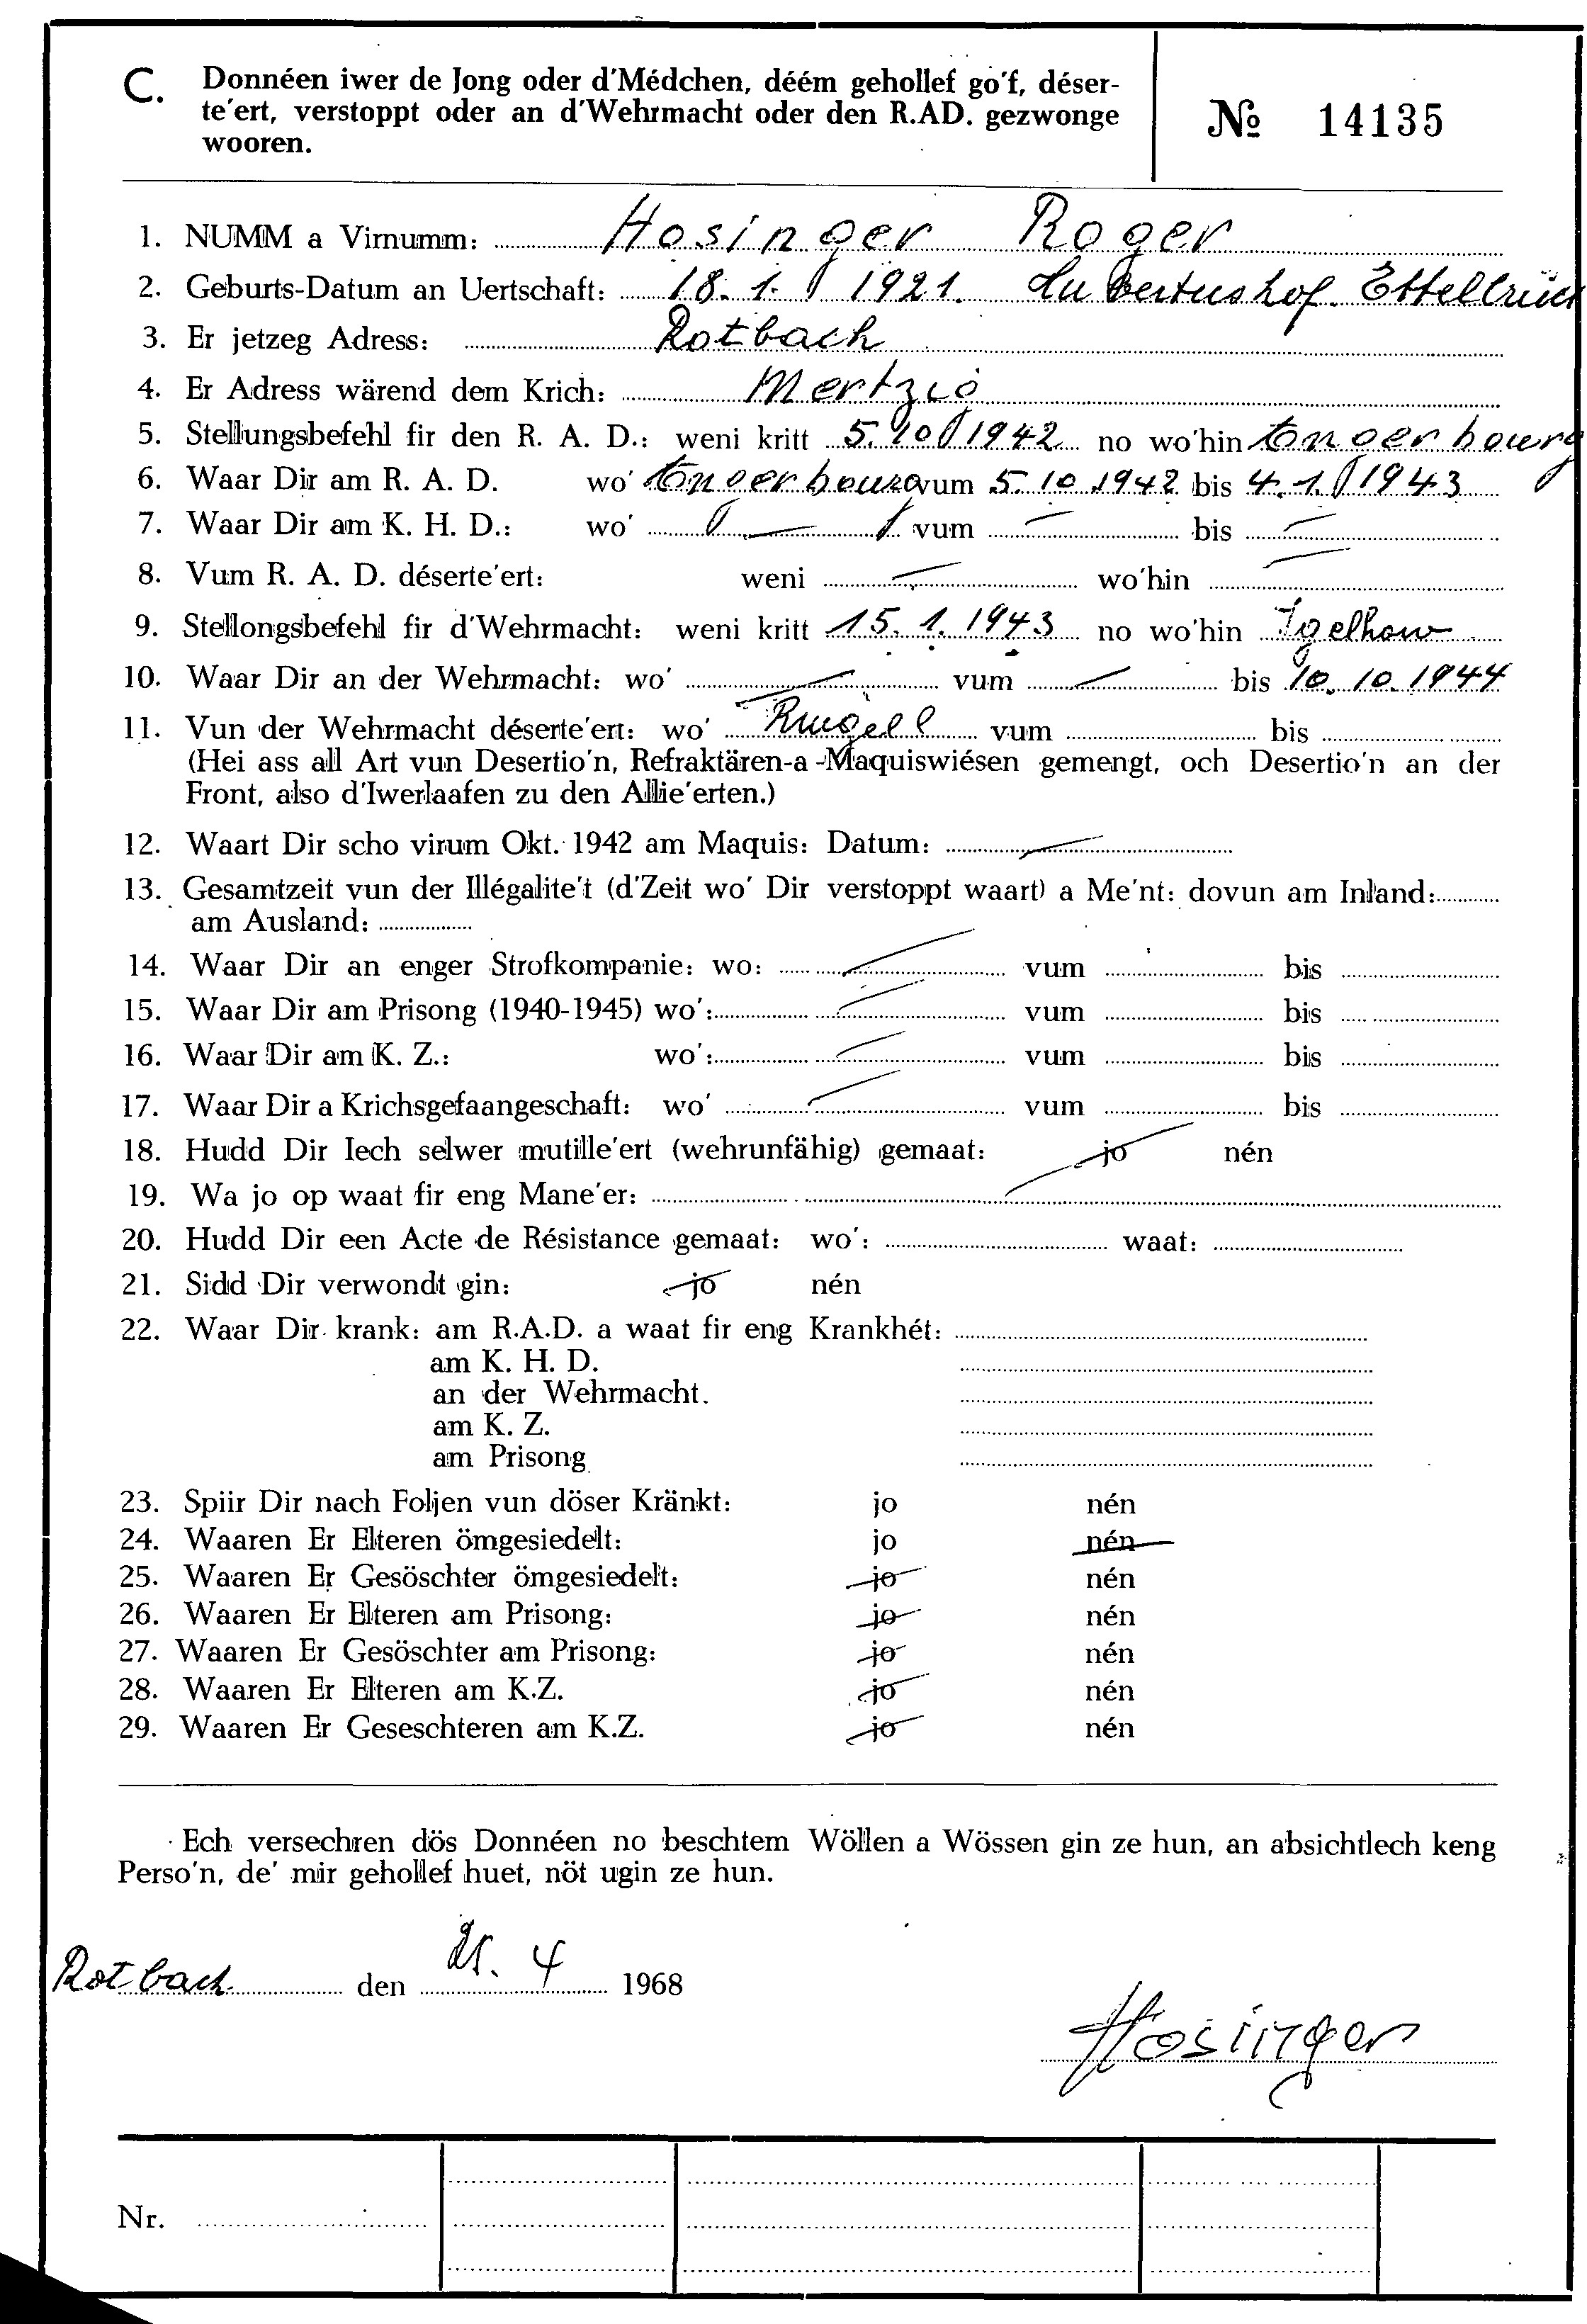 C. Donnéen iwer de Jong oder d'Médchen, déém gehollef go'f, déser-
te'ert, verstoppt oder an d'Wehrmacht oder den R.AD. gezwonge
wooren.
№ 14135
1. NUMM a Virnumm: Hosinger Roger
2. Geburts-Datum an Uertschaft: 18. 1. 1921. Hubertushof. Ettelbrück
3. Er jetzeg Adress: Rotbach
4. Er Adress wärend dem Krich: Mertzig
5. Stellungsbefehl fir den R. A. D.: weni kritt 5. 10 1942 no wo'hin
6. Waar Dir am R. A. D. wo' vum 5. 10 1942 bis 4. 1. 1943
7. Waar Dir am K. H. D.: wo' — vum — bis —
8. Vum R. A. D. déserte'ert: weni — wo'hin —
9. Stellongsbefehl fir d'Wehrmacht: weni kritt 15. 1. 1943 no wo'hin
10. Waar Dir an der Wehrmacht: wo' — vum — bis 10. 10. 1944
11. Vun der Wehrmacht déserte'ert: wo' vum bis
(Hei ass all Art vun Desertio'n, Refraktären-a-Maquiswiésen gemengt, och Desertio'n an der
Front, also d'Iwerlaafen zu den Allie'erten.)
12. Waart Dir scho virum Okt. 1942 am Maquis: Datum: —
13. Gesamtzeit vun der Illégalite't (d'Zeit wo' Dir verstoppt waart) a Me'nt: dovun am Inland:
am Ausland:
14. Waar Dir an enger Strofkompanie: wo: — vum bis
15. Waar Dir am Prisong (1940-1945) wo': — vum bis
16. Waar Dir am K. Z.: wo': — vum bis
17. Waar Dir a Krichsgefaangeschaft: wo' — vum bis
18. Hudd Dir Iech selwer mutille'ert (wehrunfähig) gemaat: jo nén
19. Wa jo op waat fir eng Mane'er: —
20. Hudd Dir een Acte de Résistance gemaat: wo': waat:
21. Sidd Dir verwondt gin: jo nén
22. Waar Dir krank: am R.A.D. a waat fir eng Krankhét:
am K. H. D.
an der Wehrmacht.
am K. Z.
am Prisong
23. Spiir Dir nach Foljen vun döser Kränkt: jo nén
24. Waaren Er Elteren ömgesiedelt: jo nén
25. Waaren Er Gesöschter ömgesiedelt: jo nén
26. Waaren Er Elteren am Prisong: jo nén
27. Waaren Er Gesöschter am Prisong: jo nén
28. Waaren Er Elteren am K.Z. jo nén
29. Waaren Er Geseschteren am K.Z. jo nén
Ech versechren dös Donnéen no beschtem Wöllen a Wössen gin ze hun, an absichtlech keng
Perso'n, de' mir gehollef huet, nöt ugin ze hun.
Rotbach den 4 1968
Hosinger
Nr.